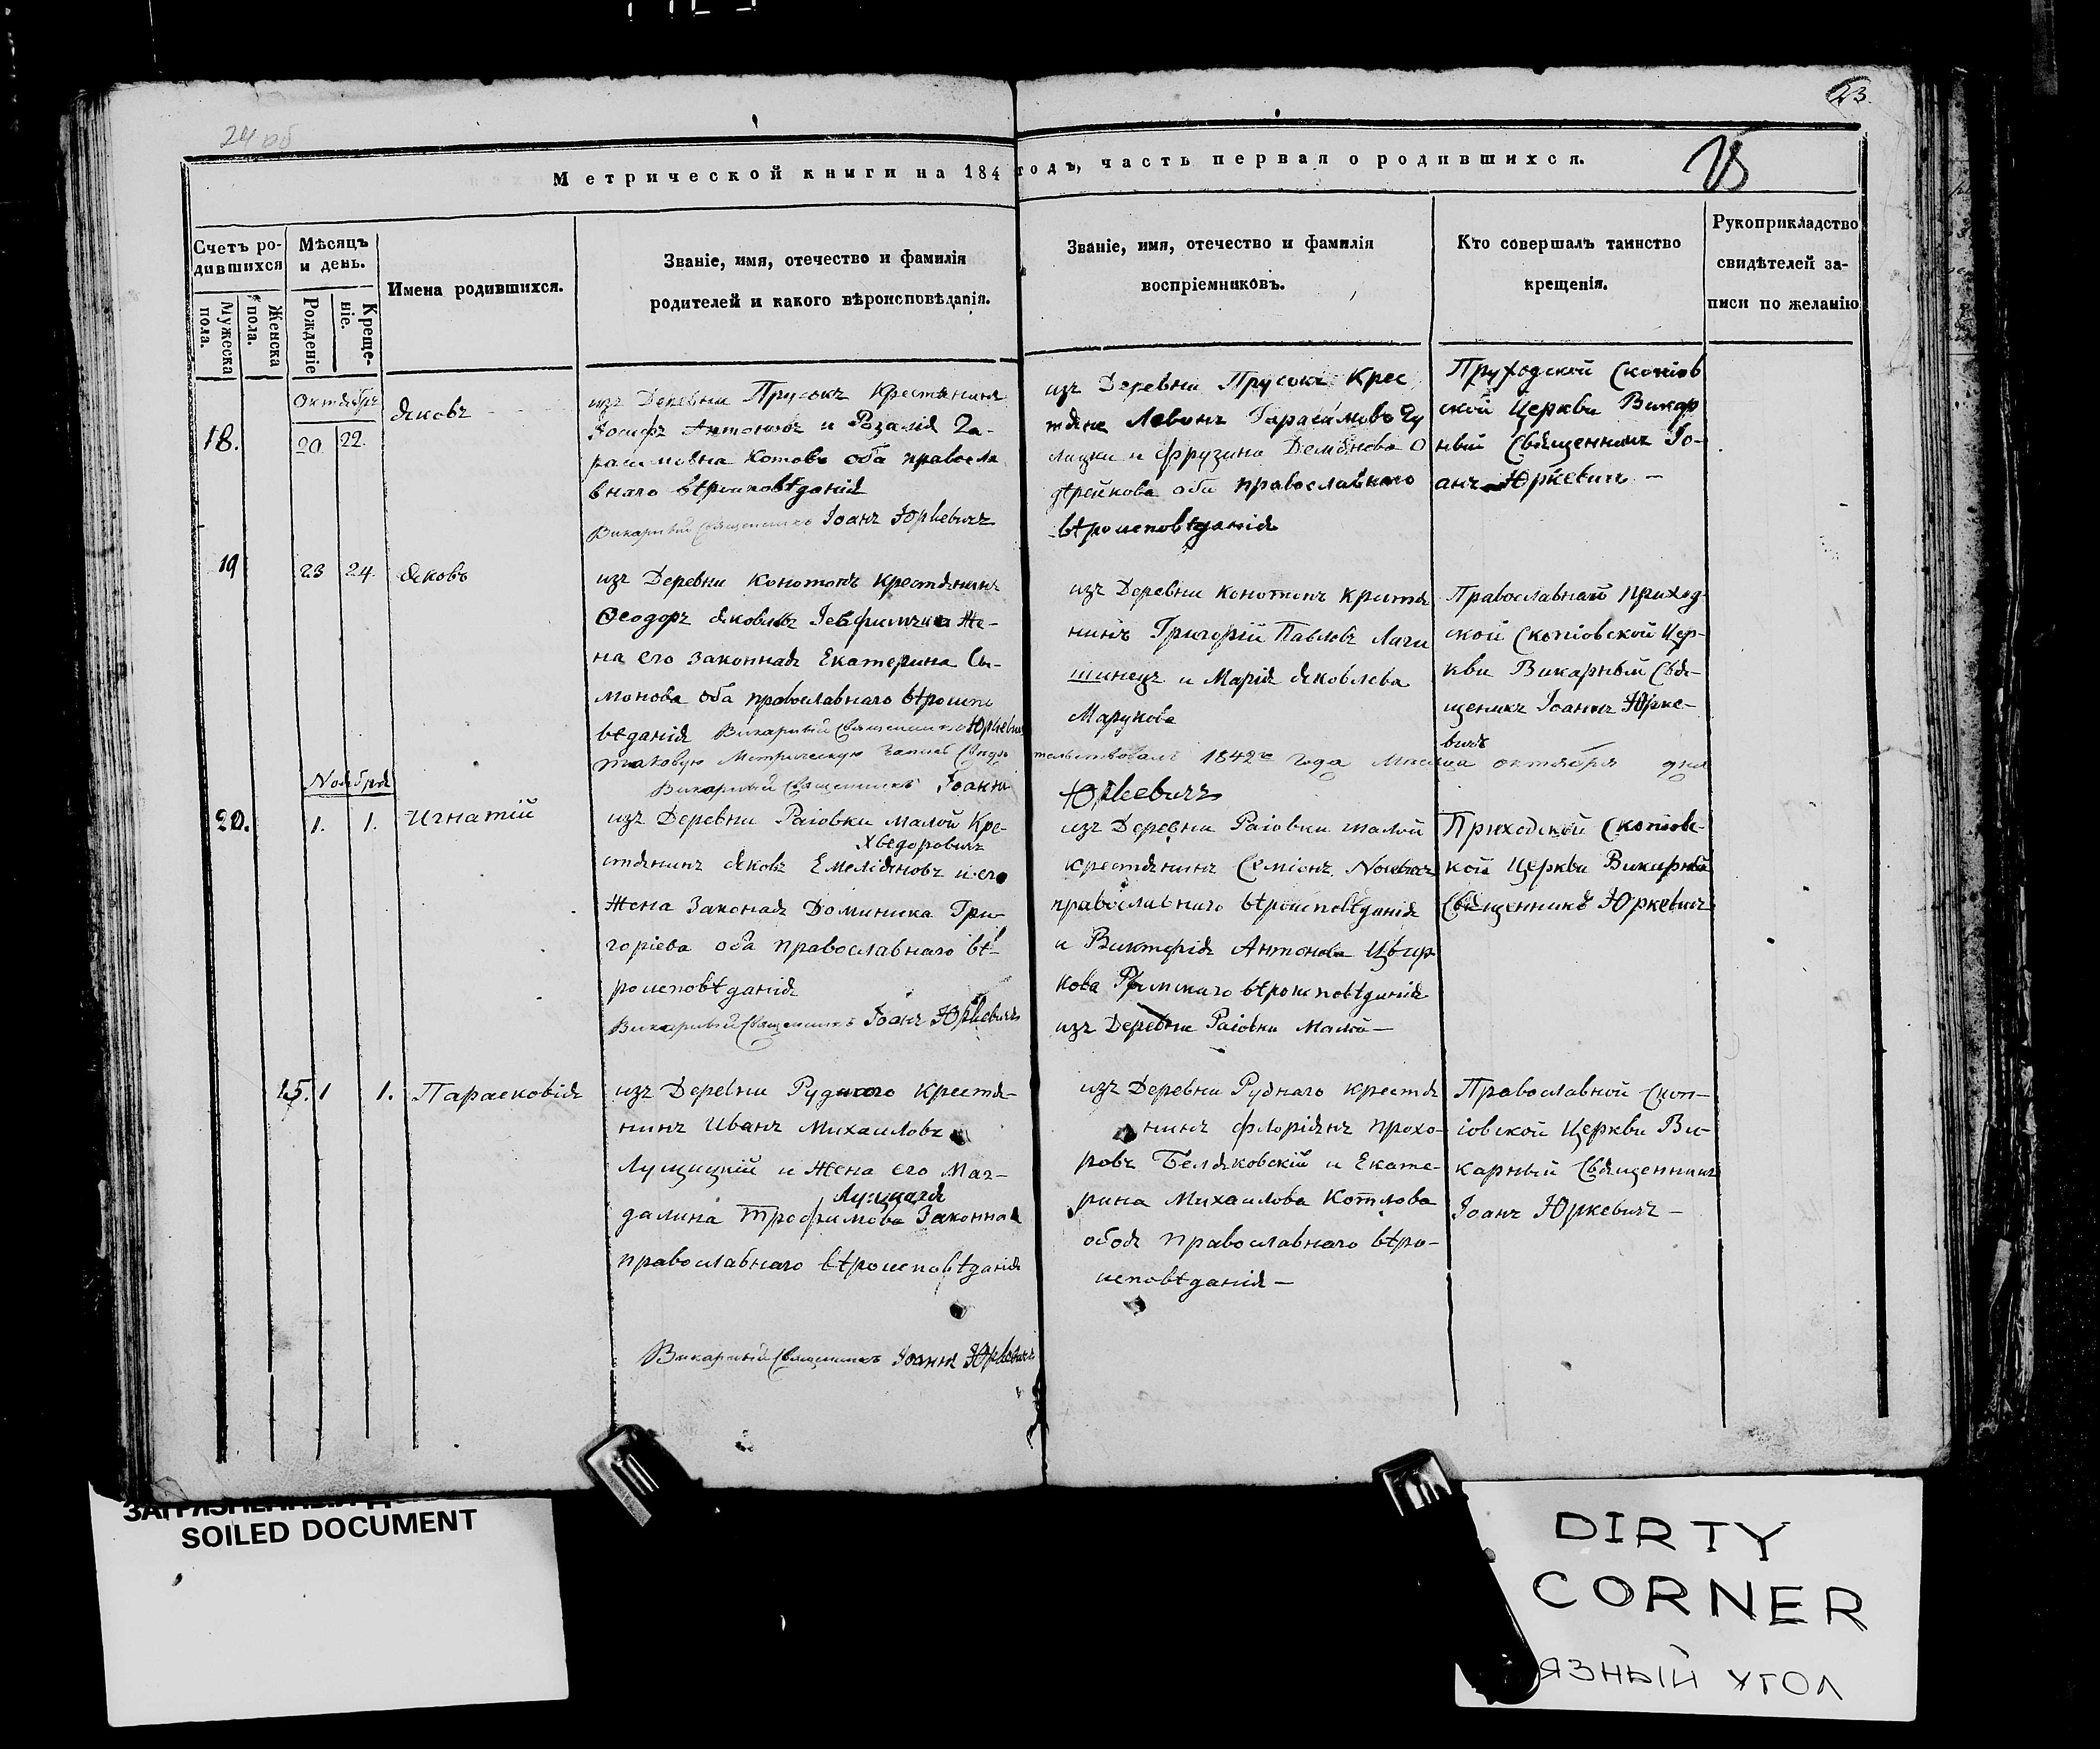 23.
24 об
18
Метрической книги на 184 годъ, часть первая о родившихся.
Счетъ ро-
дившихся
Мужеска
пола.
Женска
пола.
Мѣсяцъ
и день.
Рожденіе
Креще-
ніе.
Имена родившихся.
Званіе, имя, отечество и фамилія
родителей и какого вѣроисповѣданія.
Званіе, имя, отечество и фамилія
воспріемниковъ.
Кто совершалъ таинство
крещенія.
Рукоприкладство
свидѣтелей за-
писи по желанію
Октябрь
18.
20
22.
Яковъ
изъ Деревни Прусокъ Крестянинъ
Іосифъ Антоновъ и Розалія Га-
расимовна Котовы оба правосла
внаго вѣроисповѣданія
Викарный Священникъ Іоанъ Юркевичъ
изъ Деревни Прусокъ Крес
тяне Левонъ Гарасимовъ
и Фрузина Демянова О
оба православнаго
вѣроисповѣданія
Приходской Скопіов
ской Церкви Викар
ный Священникъ Іо-
анъ Юркевичъ –
19
23
24.
Яковъ
изъ Деревни Конотопъ Крестянинъ
Ѳеодоръ Яковлевъ и Же-
на его законная Екатерина Си-
монова оба православнаго вѣроиспо
вѣданія Викарный Священникъ Юркевич
изъ Деревни Конотопъ Крестя
нинъ Григорій Павловъ Лаги
шинецъ и Марія Яковлева
Марукова
Православной Приход-
ской Скопіовской Цер-
кви Викарный Свя-
щеникъ Іоаннъ Юрке-
вичъ
таковую Метрическую Запись Свидѣ тельствовалъ 1842го года Месяца октября дня
Викарный Священникъ Іоаннъ Юркевичъ
Ноября
20.
1.
1.
Игнатій
изъ Деревни Раіовки малой Кре-
Хведоровичъ
стянинъ Яковъ Емеліяновъ и его
Жена Законая Доминика Гри-
горіева оба православнаго вѣ-
роисповѣданія
Викарный Священникъ Іоанъ Юркевичъ
изъ Деревни Раіовки малой
крестянинъ Семіонъ
православнаго вѣроисповѣданія
и Викторія Антонова Цвир
кова Римскаго вѣроисповѣданія
изъ Деревни Раіовки Малой –
Приходской Скопіовс-
кой Церкви Викарный
Священникъ Юркевичъ
15.
1
1.
Парасковія
изъ Деревни Руднаго Крестя-
нинъ Иванъ Михаиловъ
Лущицкій и Жена его Маг-
Лущицкая
далина Трофимова Законная
православнаго вѣроисповѣданія
Викарный Священникъ Іоаннъ Юркевичъ
изъ Деревни Руднаго Крестя
нинъ Флоріянъ Прохо-
ровъ Беляковскій и Екате-
рина Михаилова Котлова
обоя православнаго вѣро-
исповѣданія –
Православной Скоп-
іовской Церкви Ви-
карный Священникъ
Іоанъ Юркевичъ –
SOILED DOCUMENT
DIRTY
CORNER
ЯЗНЫЙ УГОЛ